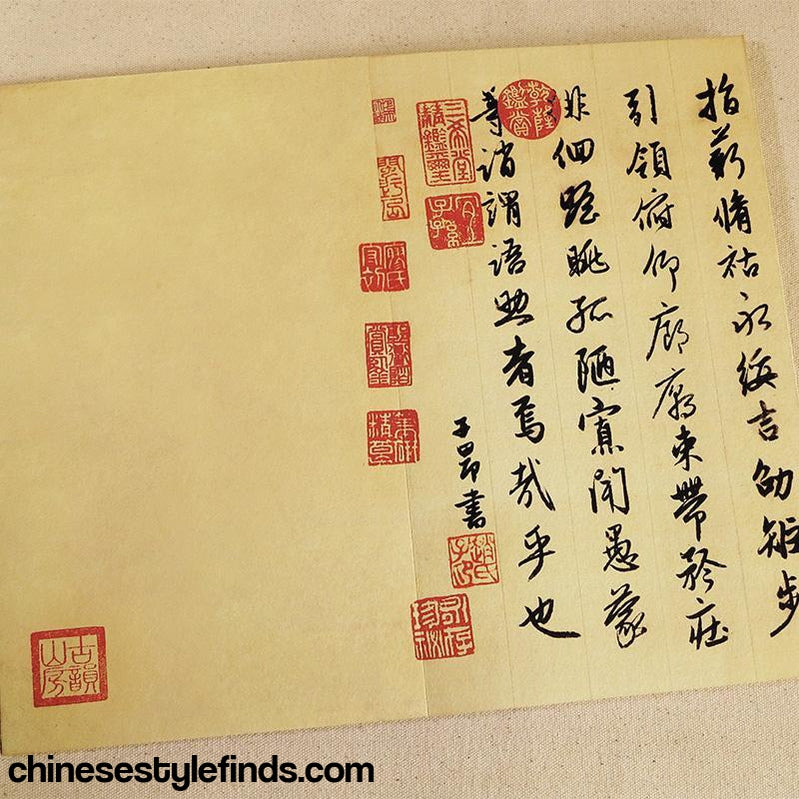 指薪脩祜永綏吉劭矩步
引領俯仰廊廟束帶矜莊
徘徊瞻眺孤陋寡聞愚蒙
等誚謂語助者焉哉乎也
子昂書
乾隆鑑賞
三希堂精鑑璽
宜子孫
古韻山房
chinesestylefinds.com